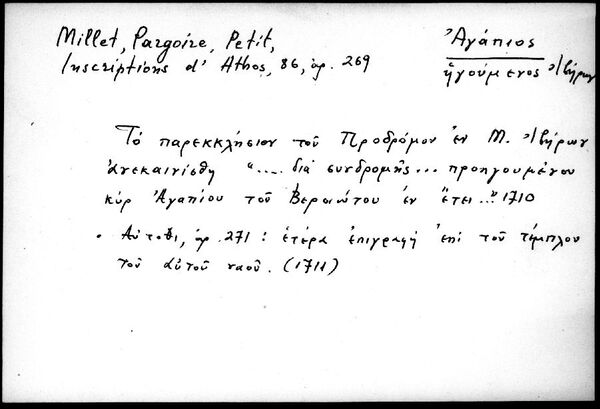 Millet, Pargoire, Petit,
Inscriptions d' Athos, 86, ἀρ. 269
Ἀγάπιος
ἡγούμενος Ἰβήρων
Τὸ παρεκκλήσιον τοῦ Προδρόμου ἐν Μ. Ἰβήρων
ἀνεκαινίσθη "... διὰ συνδρομῆς... προηγουμένου
κὺρ Ἀγαπίου τοῦ Βεροιώτου ἐν ἔτει..." 1710
• Αὐτόθι, ἀρ. 271 : ἑτέρα ἐπιγραφὴ ἐπὶ τοῦ τέμπλου
τοῦ αὐτοῦ ναοῦ. (1711)